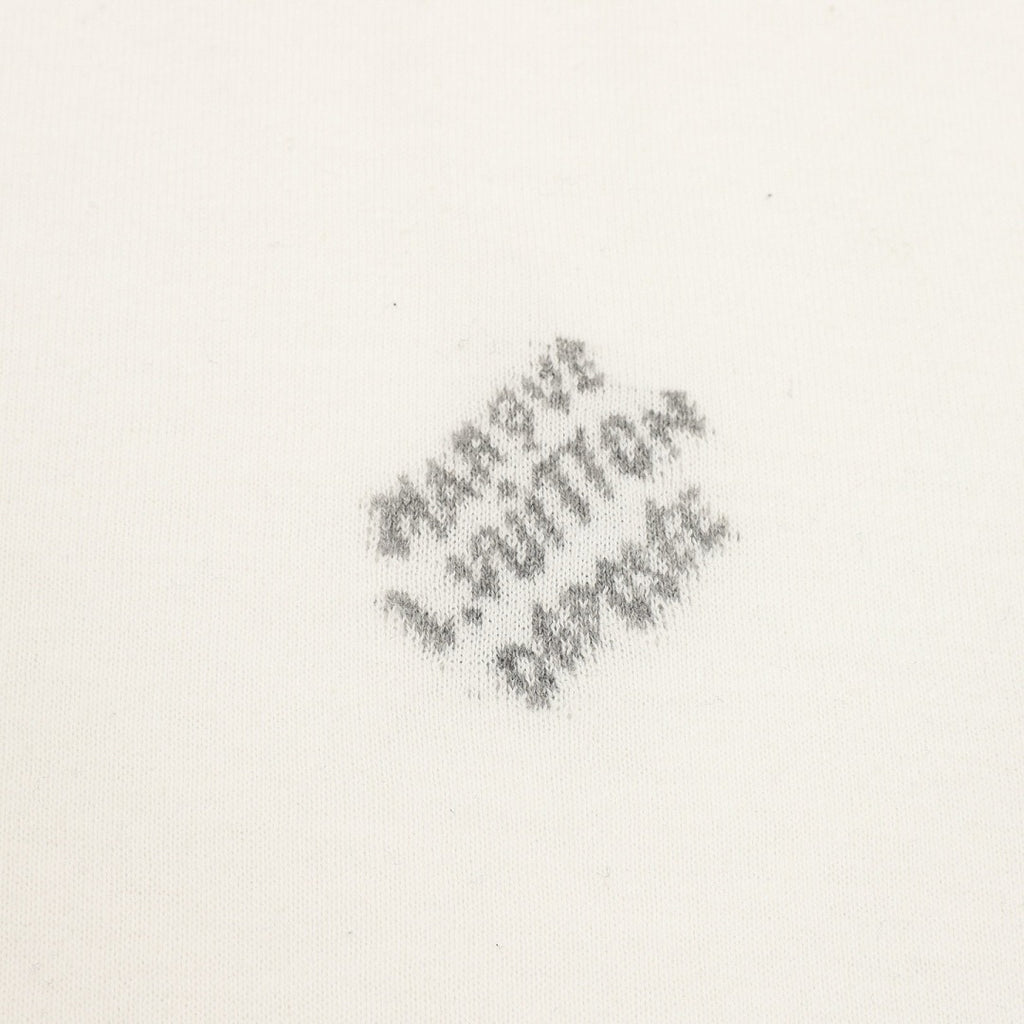 MARQUE
L.VUITTON
DÉPOSÉE